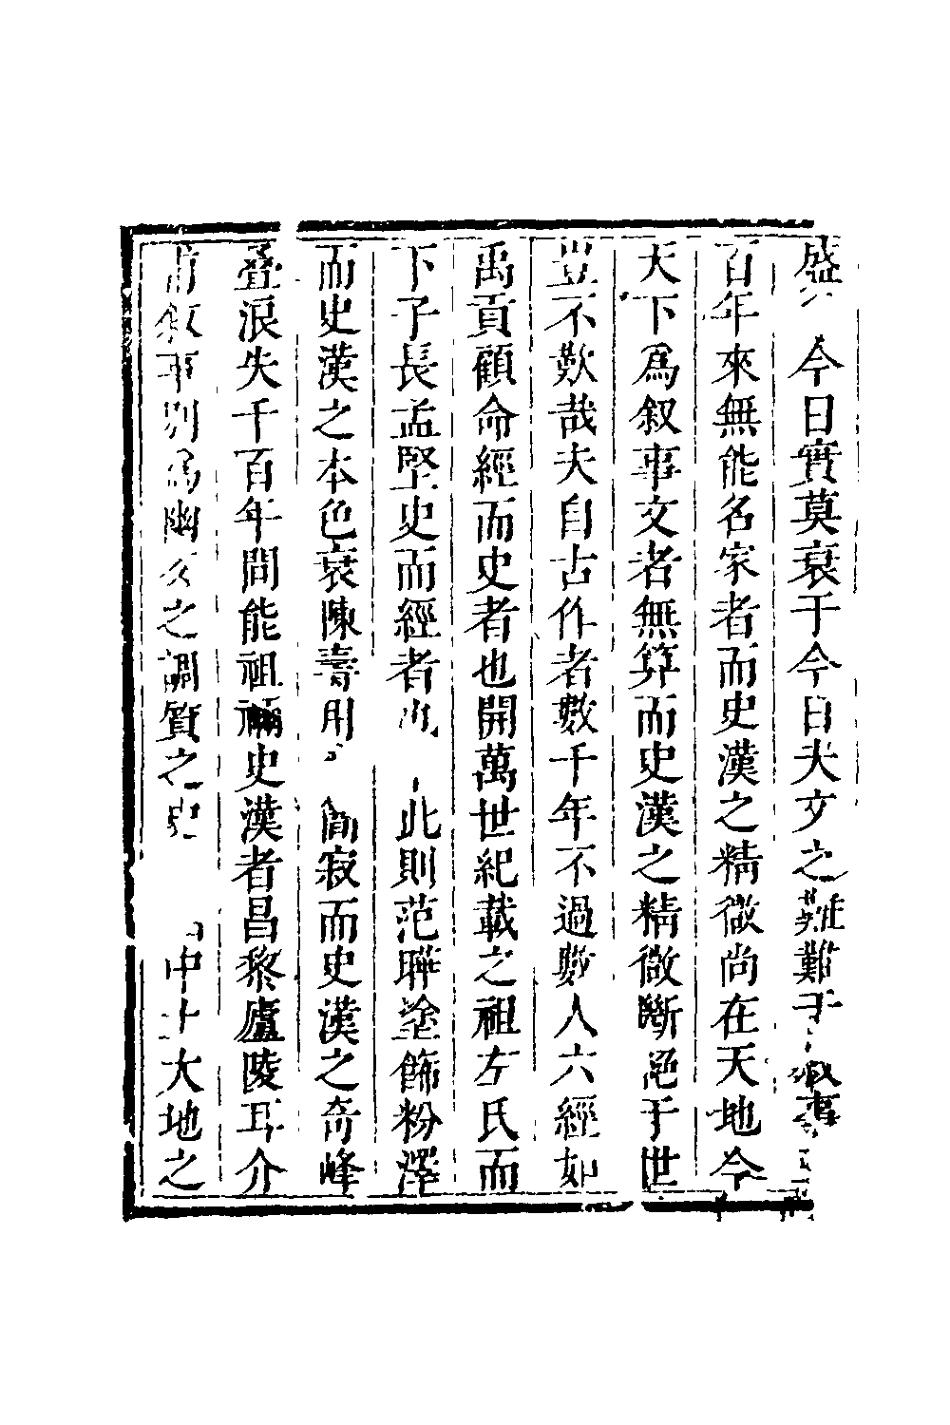 盛 今日實莫衰于今日夫文之難難于叙事
百年來無能名家者而史漢之精微尚在天地今
天下爲叙事文者無算而史漢之精微斷絕于世
豈不歎哉夫自古作者數千年不過數人六經如
禹貢顧命經而史者也開萬世紀載之祖左氏而
下子長孟堅史而經者也 此則范曄塗飾粉澤
而史漢之本色衰陳壽用 簡寂而史漢之奇峰
叠浪失千百年間能祖禰史漢者昌黎廬陵耳介
甫叙事別爲幽 之調質之 中土大地之